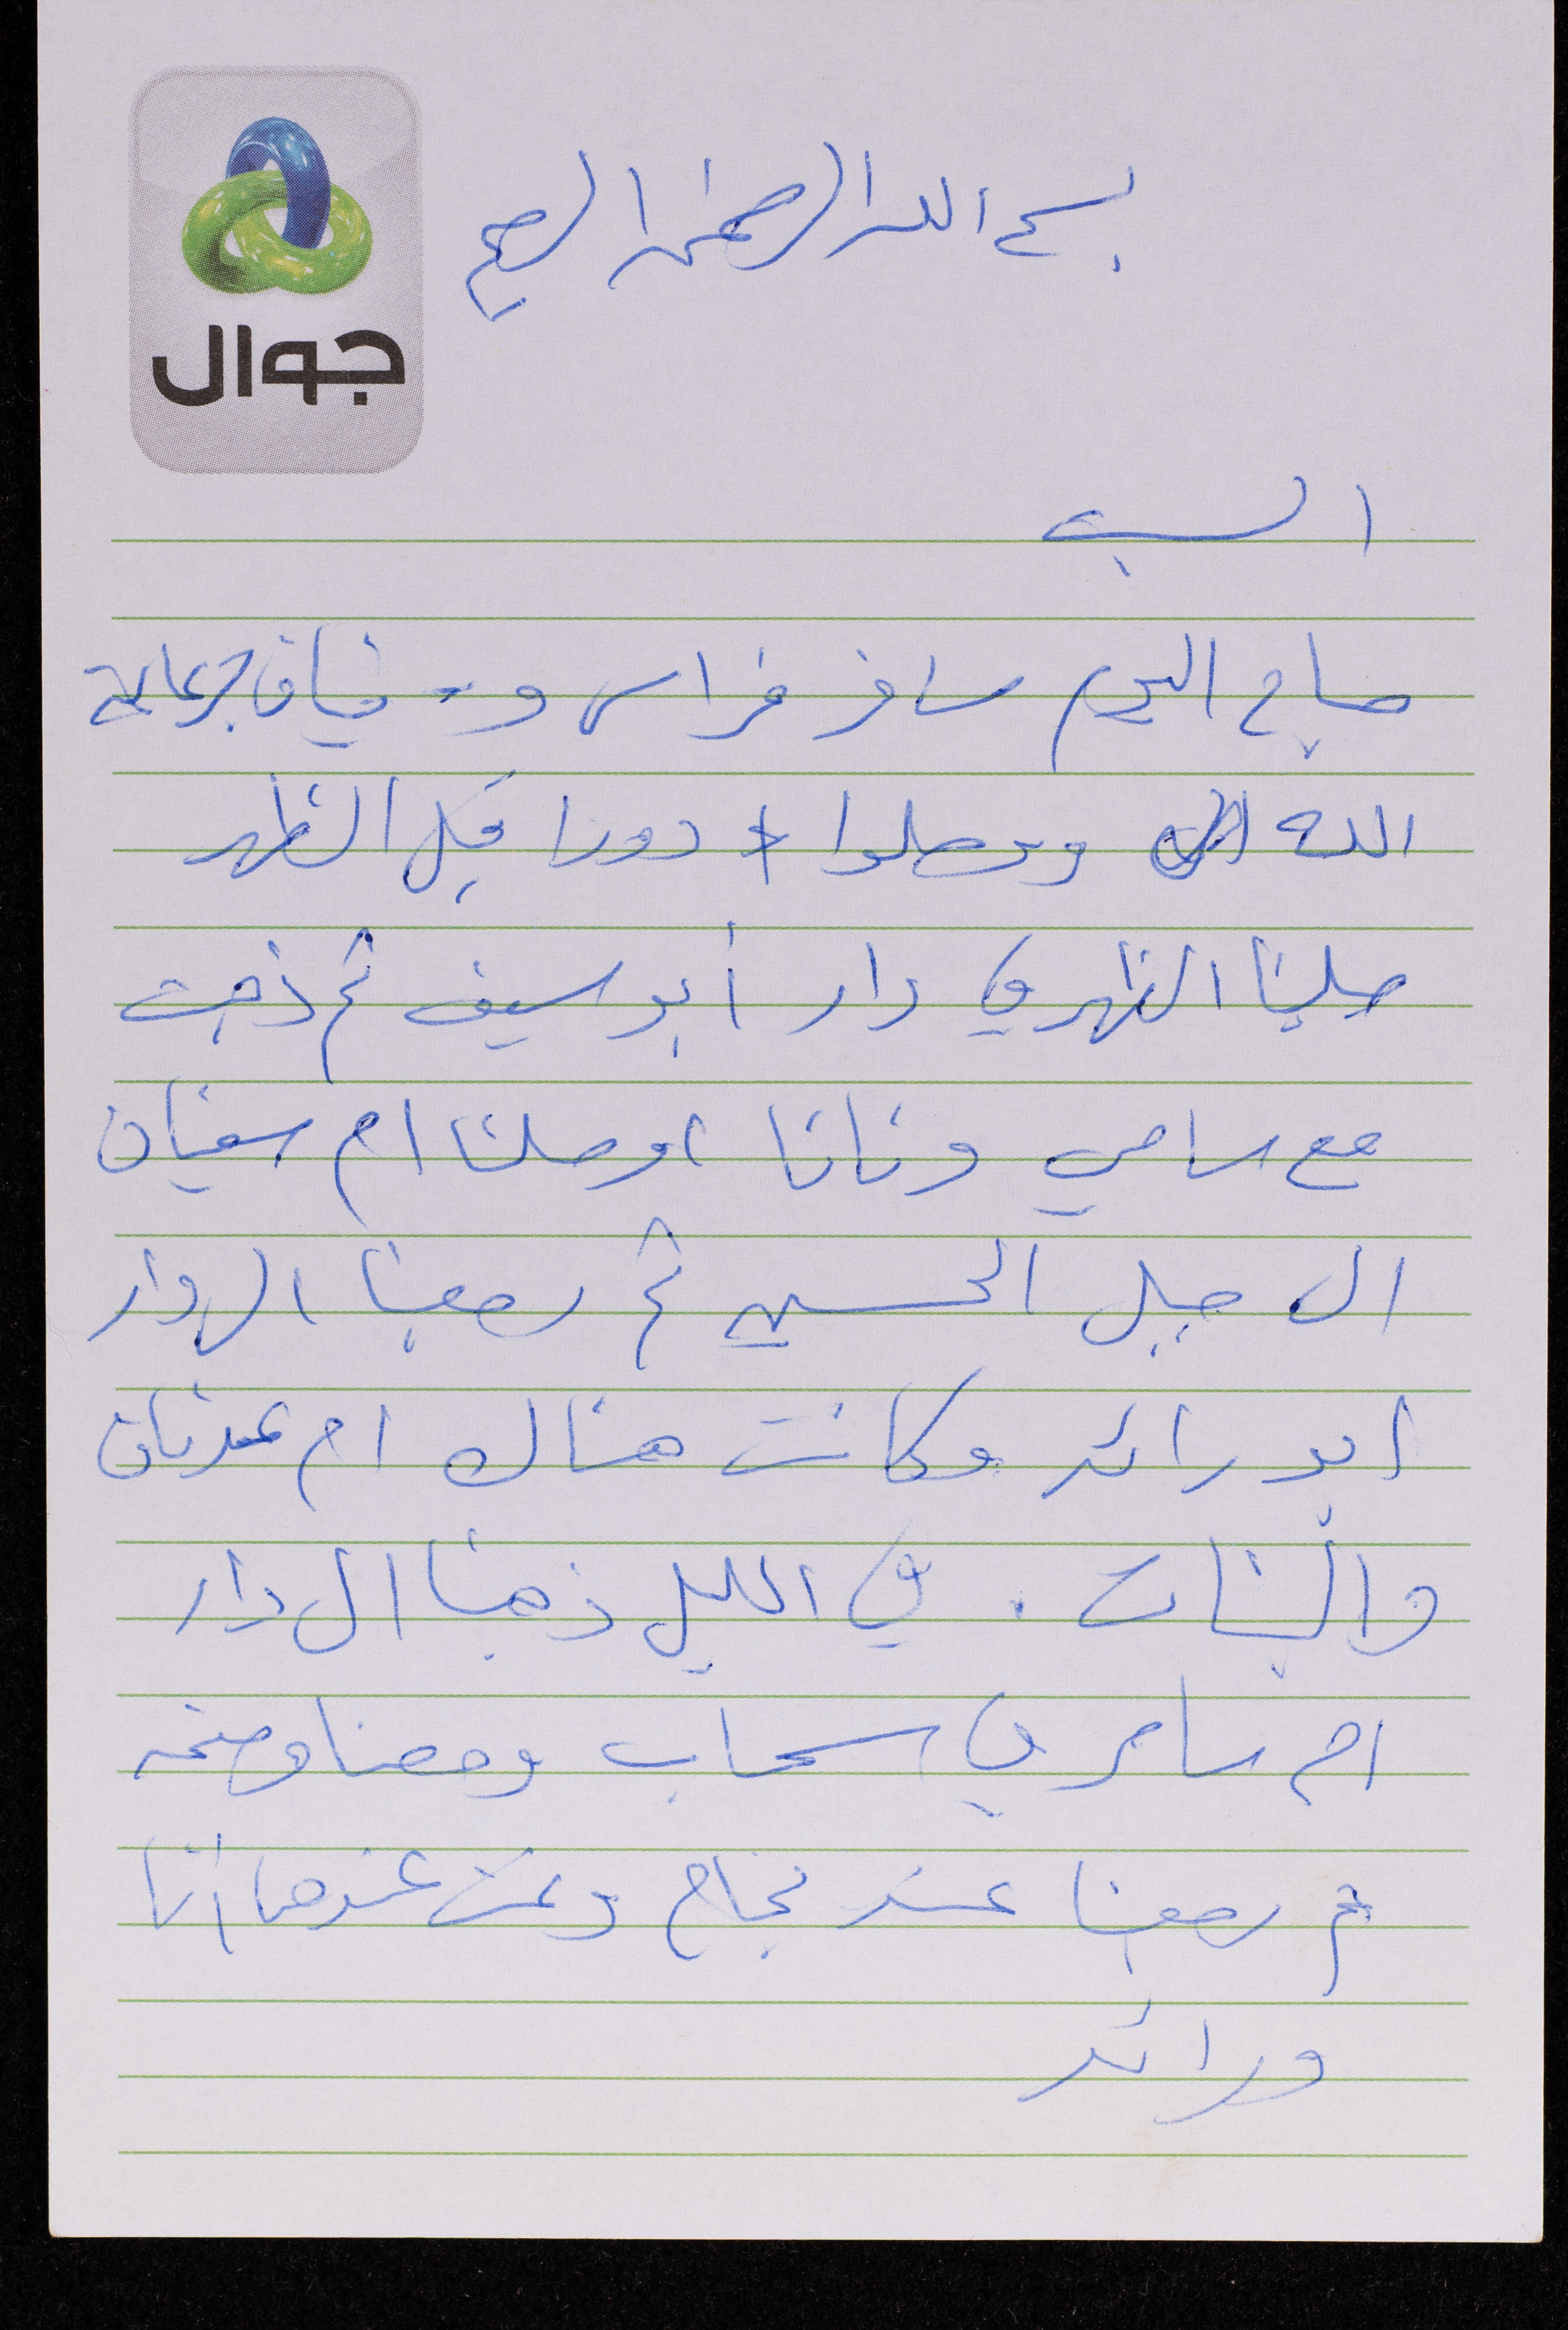 بسم الله الرحمن الرحيم
جوال
السبت
صباح اليوم سافر فراس و برعاية
الله ووصلوا دورا قبل الظهر
صلينا الظهر في دار أبو سيف ثم ذهبت
مع سامي ونانا اوصلنا ام سفيان
الى جبل الحسين ثم رجعنا الى دار
ابو رائد وكانت هناك ام عدنان
والبنات . في الليل ذهبنا الى دار
ام سامر في سحاب ومعنا
ثم رجعنا عند نجاح ونمت عندها أنا
ورائد